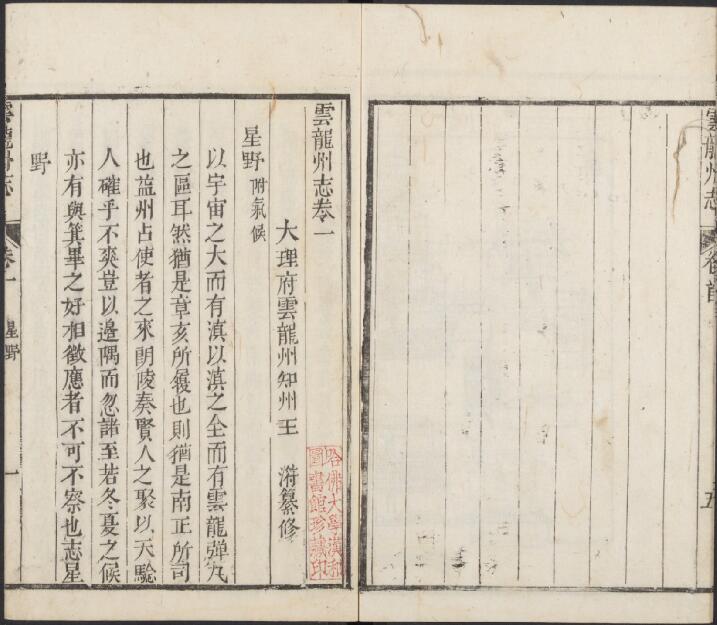 雲龍州志
卷首
五
雲龍州志卷一
大理府雲龍州知州王 㵂纂修
星野附氣候
以宇宙之大而有滇以滇之全而有雲龍彈丸
之區耳然猶是章亥所履也則猶是南正所司
也益州占使者之來朗陵奏賢人之聚以天驗
人確乎不爽豈以邊隅而忽諸至若冬夏之候
亦有與箕畢之好相徵應者不可不察也志星
野
雲龍州志
卷一
星野
一
哈佛大學漢和
圖書館珍藏印